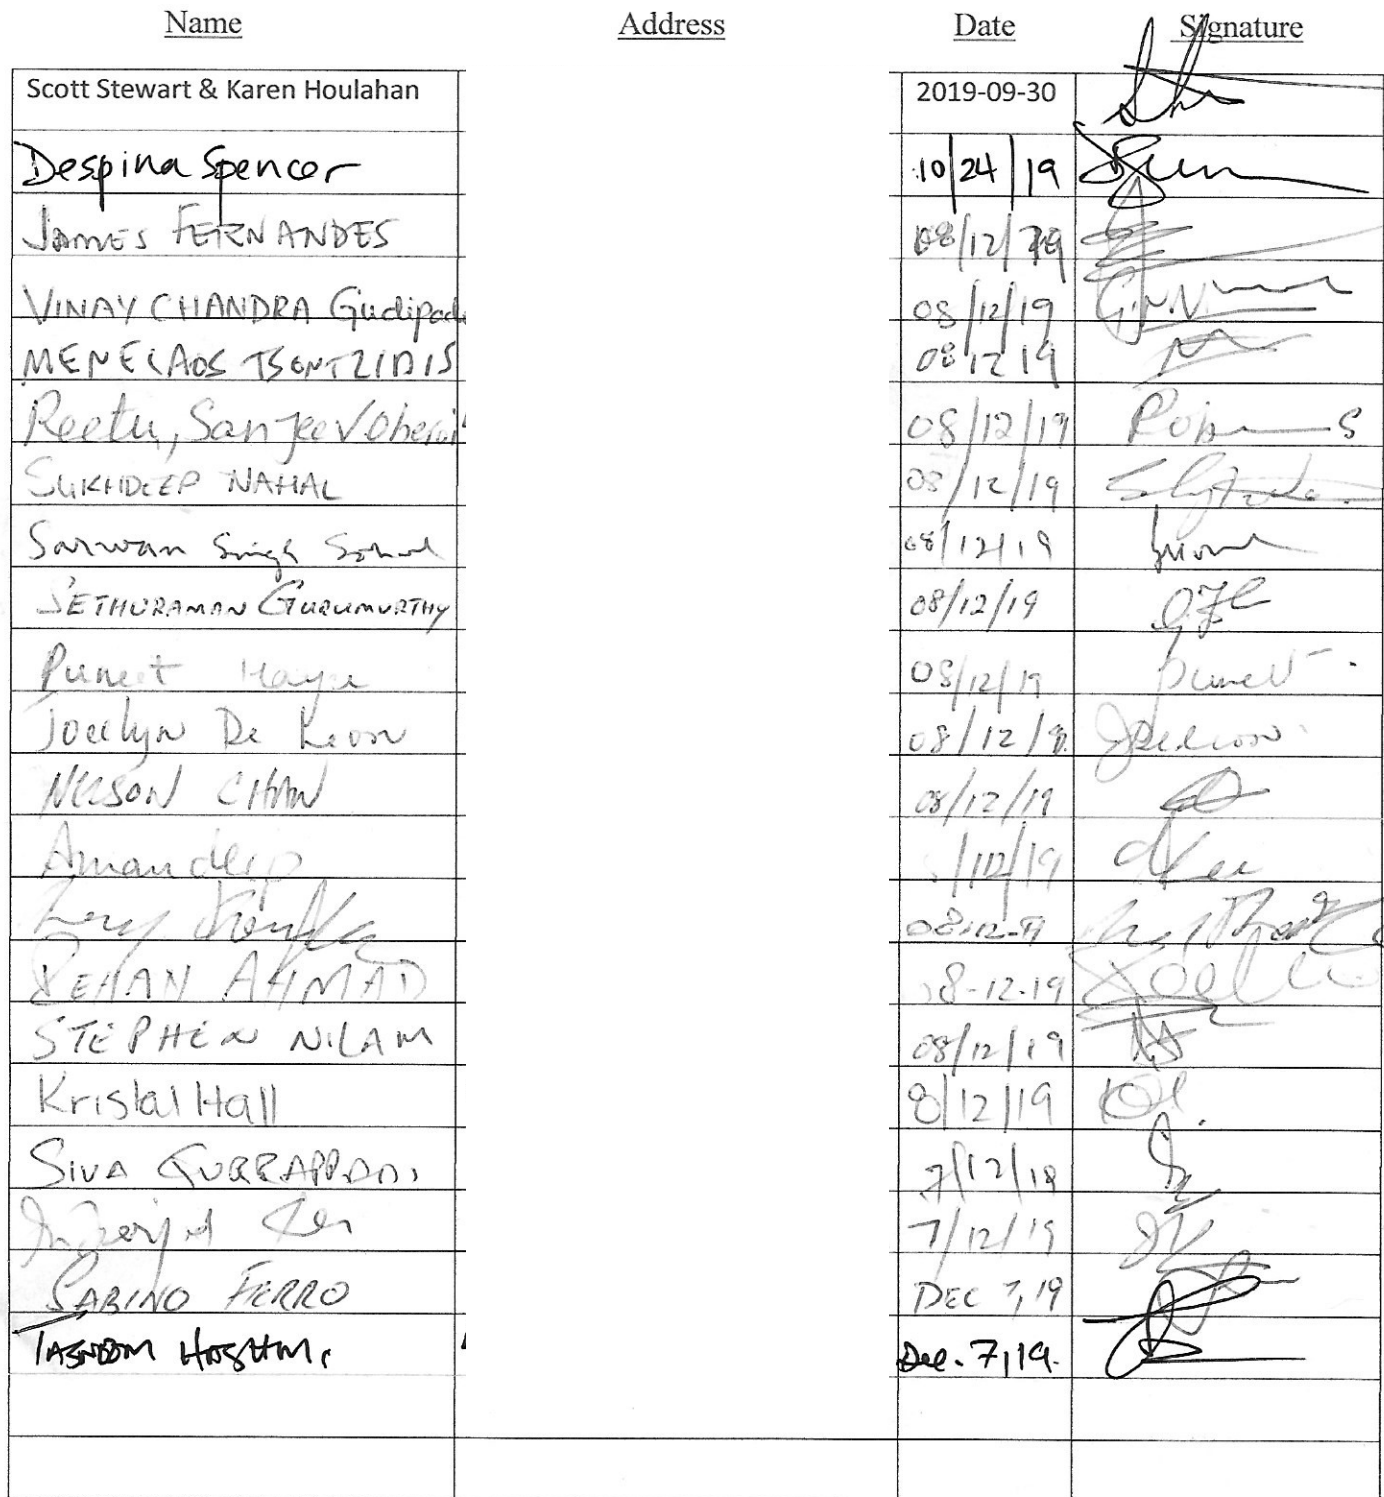 Name Address Date Signature
Scott Stewart & Karen Houlahan 2019-09-30
Despina Spencer 10/24/19
JAMES FERNANDES 08/12/19
VINAY CHANDRA Gudipad 08/12/19
MENELAOS TSENTZIDIS 08 12 19
Reetu, Sanjeev Oberoi 08/12/19
SUKHDEEP NAHAL 08/12/19
Sarwan Singh 08/12/19
SETHURAMAN GURUMURTHY 08/12/19
Puneet 08/12/19 Puneet
Jocelyn De Leon 08/12/19
NELSON CHAN 08/12/19
Amandeep /12/19
08-12-19
REHAN AHMAD 08-12-19
STEPHEN NILAM 08/12/19
Kristal Hall 8/12/19 KH.
SIVA 7/12/19
7/12/19
SABINO FERRO DEC 7, 19
TASNEEM HASHMI Dec. 7, 19.